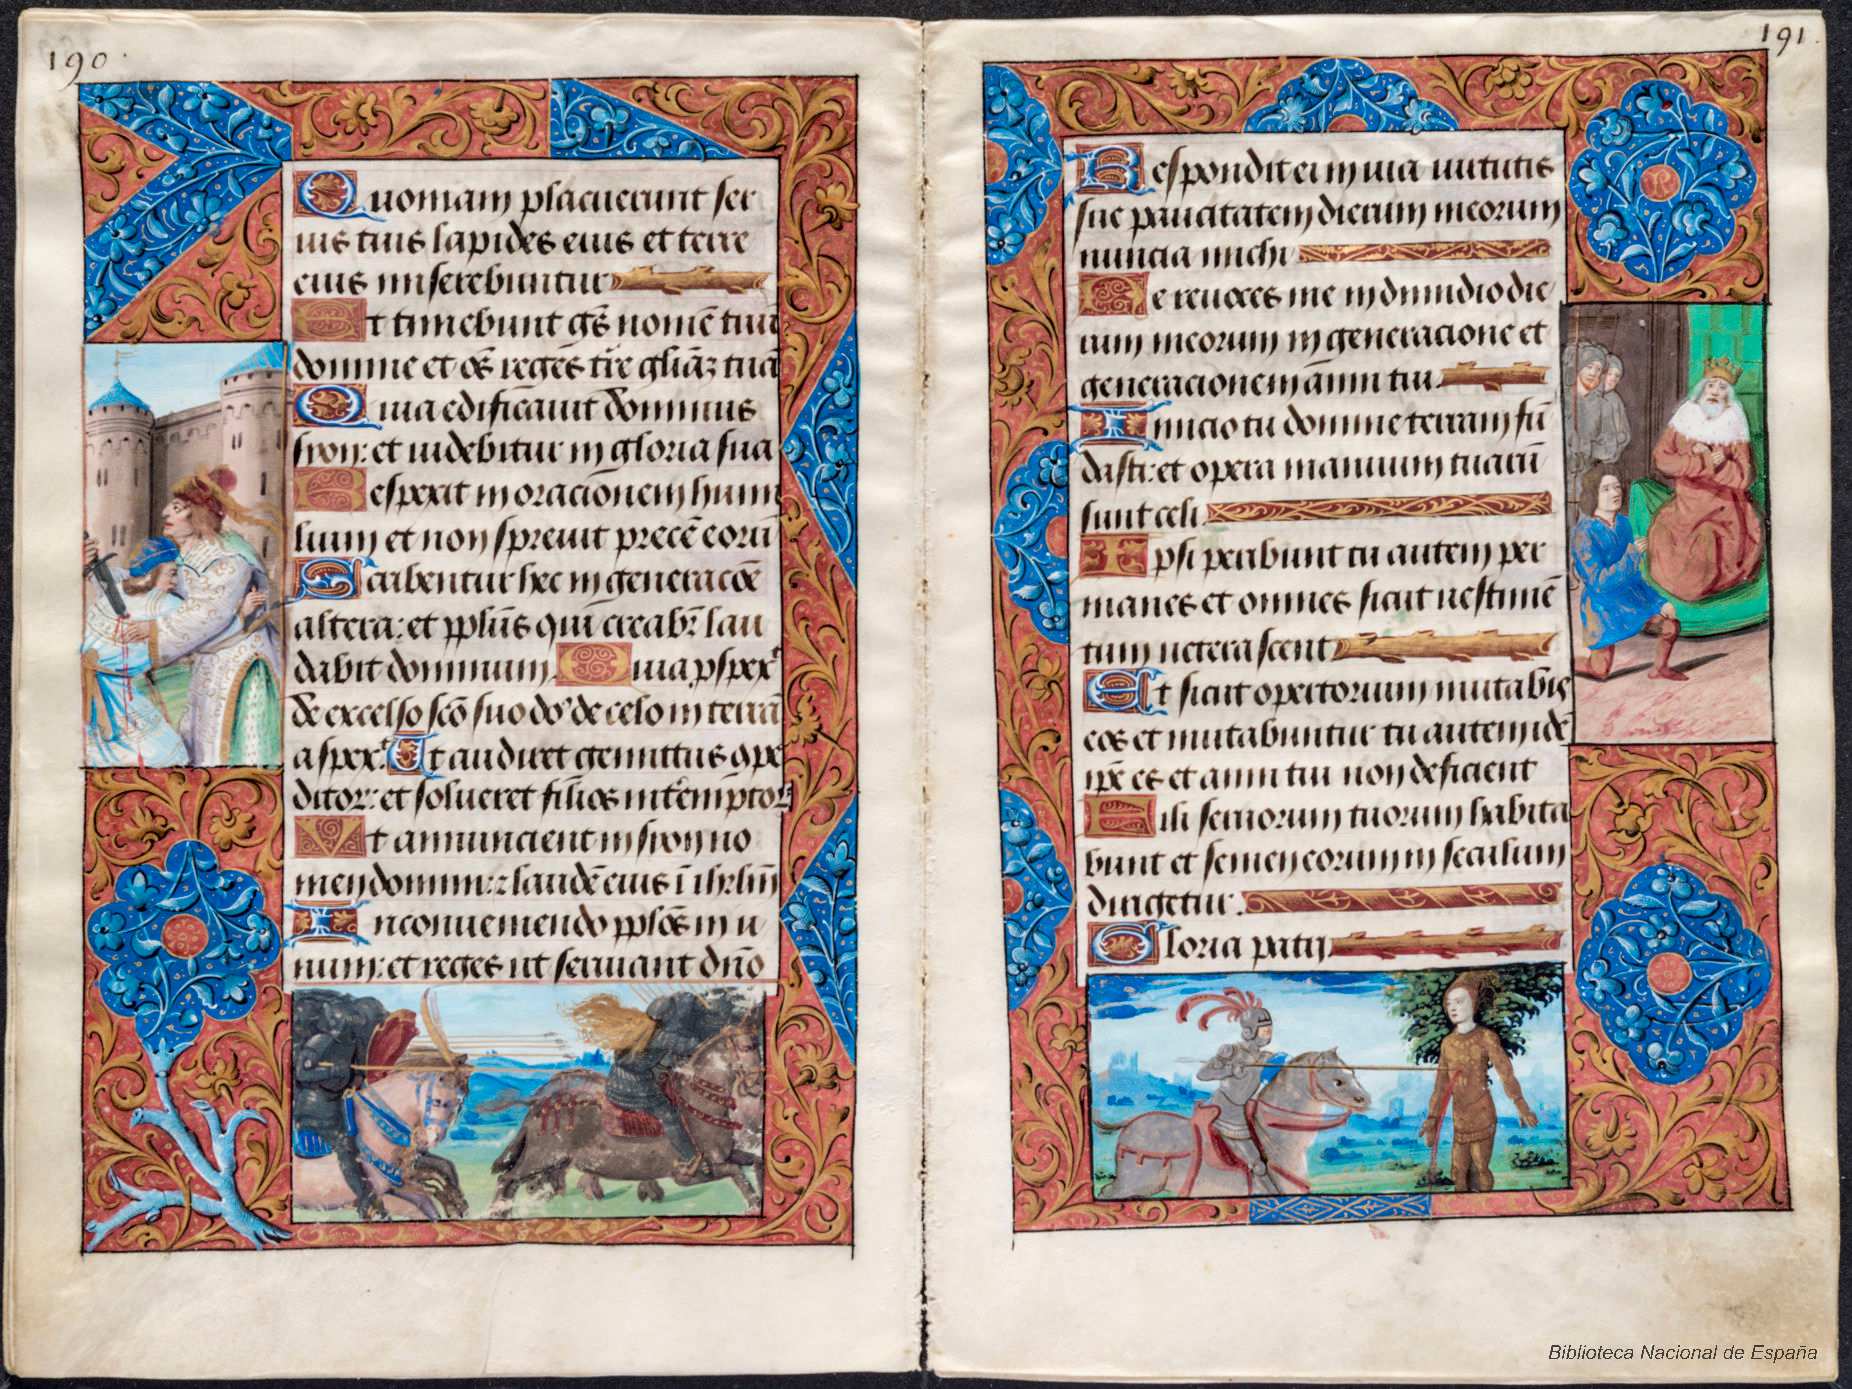 190.
Quoniam placuerunt ser
uis tuis lapides eius et terre
eius miserebuntur
Et timebunt gẽs nomẽ tuũ
domine et oẽs reges tr̃e gliãꝫ tuã
Quia edificauit dominus
syon: et uidebitur in gloria sua
Respexit in oracionem humi
lium et non spreuit precẽ eorũ
Scribentur hec in generacõe
altera: et ppl̃us qui creabr̃ lau
dabit dominum Quia ꝓspexᵗ
de excelso sc̃o suo do᷒ de celo in terrã
aspexᵗ. Ut audiret gemittus ↄpe
ditoꝝ: et solueret filios intẽmptoꝝ
Vt annuncient in syon no
men domini: ⁊ laudẽ eius ĩ ihrl̃m
In conueniendo ppl̃os in u
num: et reges ut seruiant dño
191.
Respondit ei in uia uirtutis
sue paucitatem dierum meorum
nuncia michi
Ne reuoces me in dimidio die
rum meorum in generacione et
generacionem ãnni tui
Inicio tu domine terram fũ
dasti: et opera manuum tuarũ
sunt celi.
Ipsi peribunt tu autem per
manes et omnes sicut uestimẽ
tum ueterascent
Et sicut opertorium mutabis
eos et mutabuntur tu autem idẽ
ip̃e es et anni tui non deficient
Filii seruorum tuorum habita
bunt et semen eorum in seculum
dirigetur.
Gloria patri
Biblioteca Nacional de España